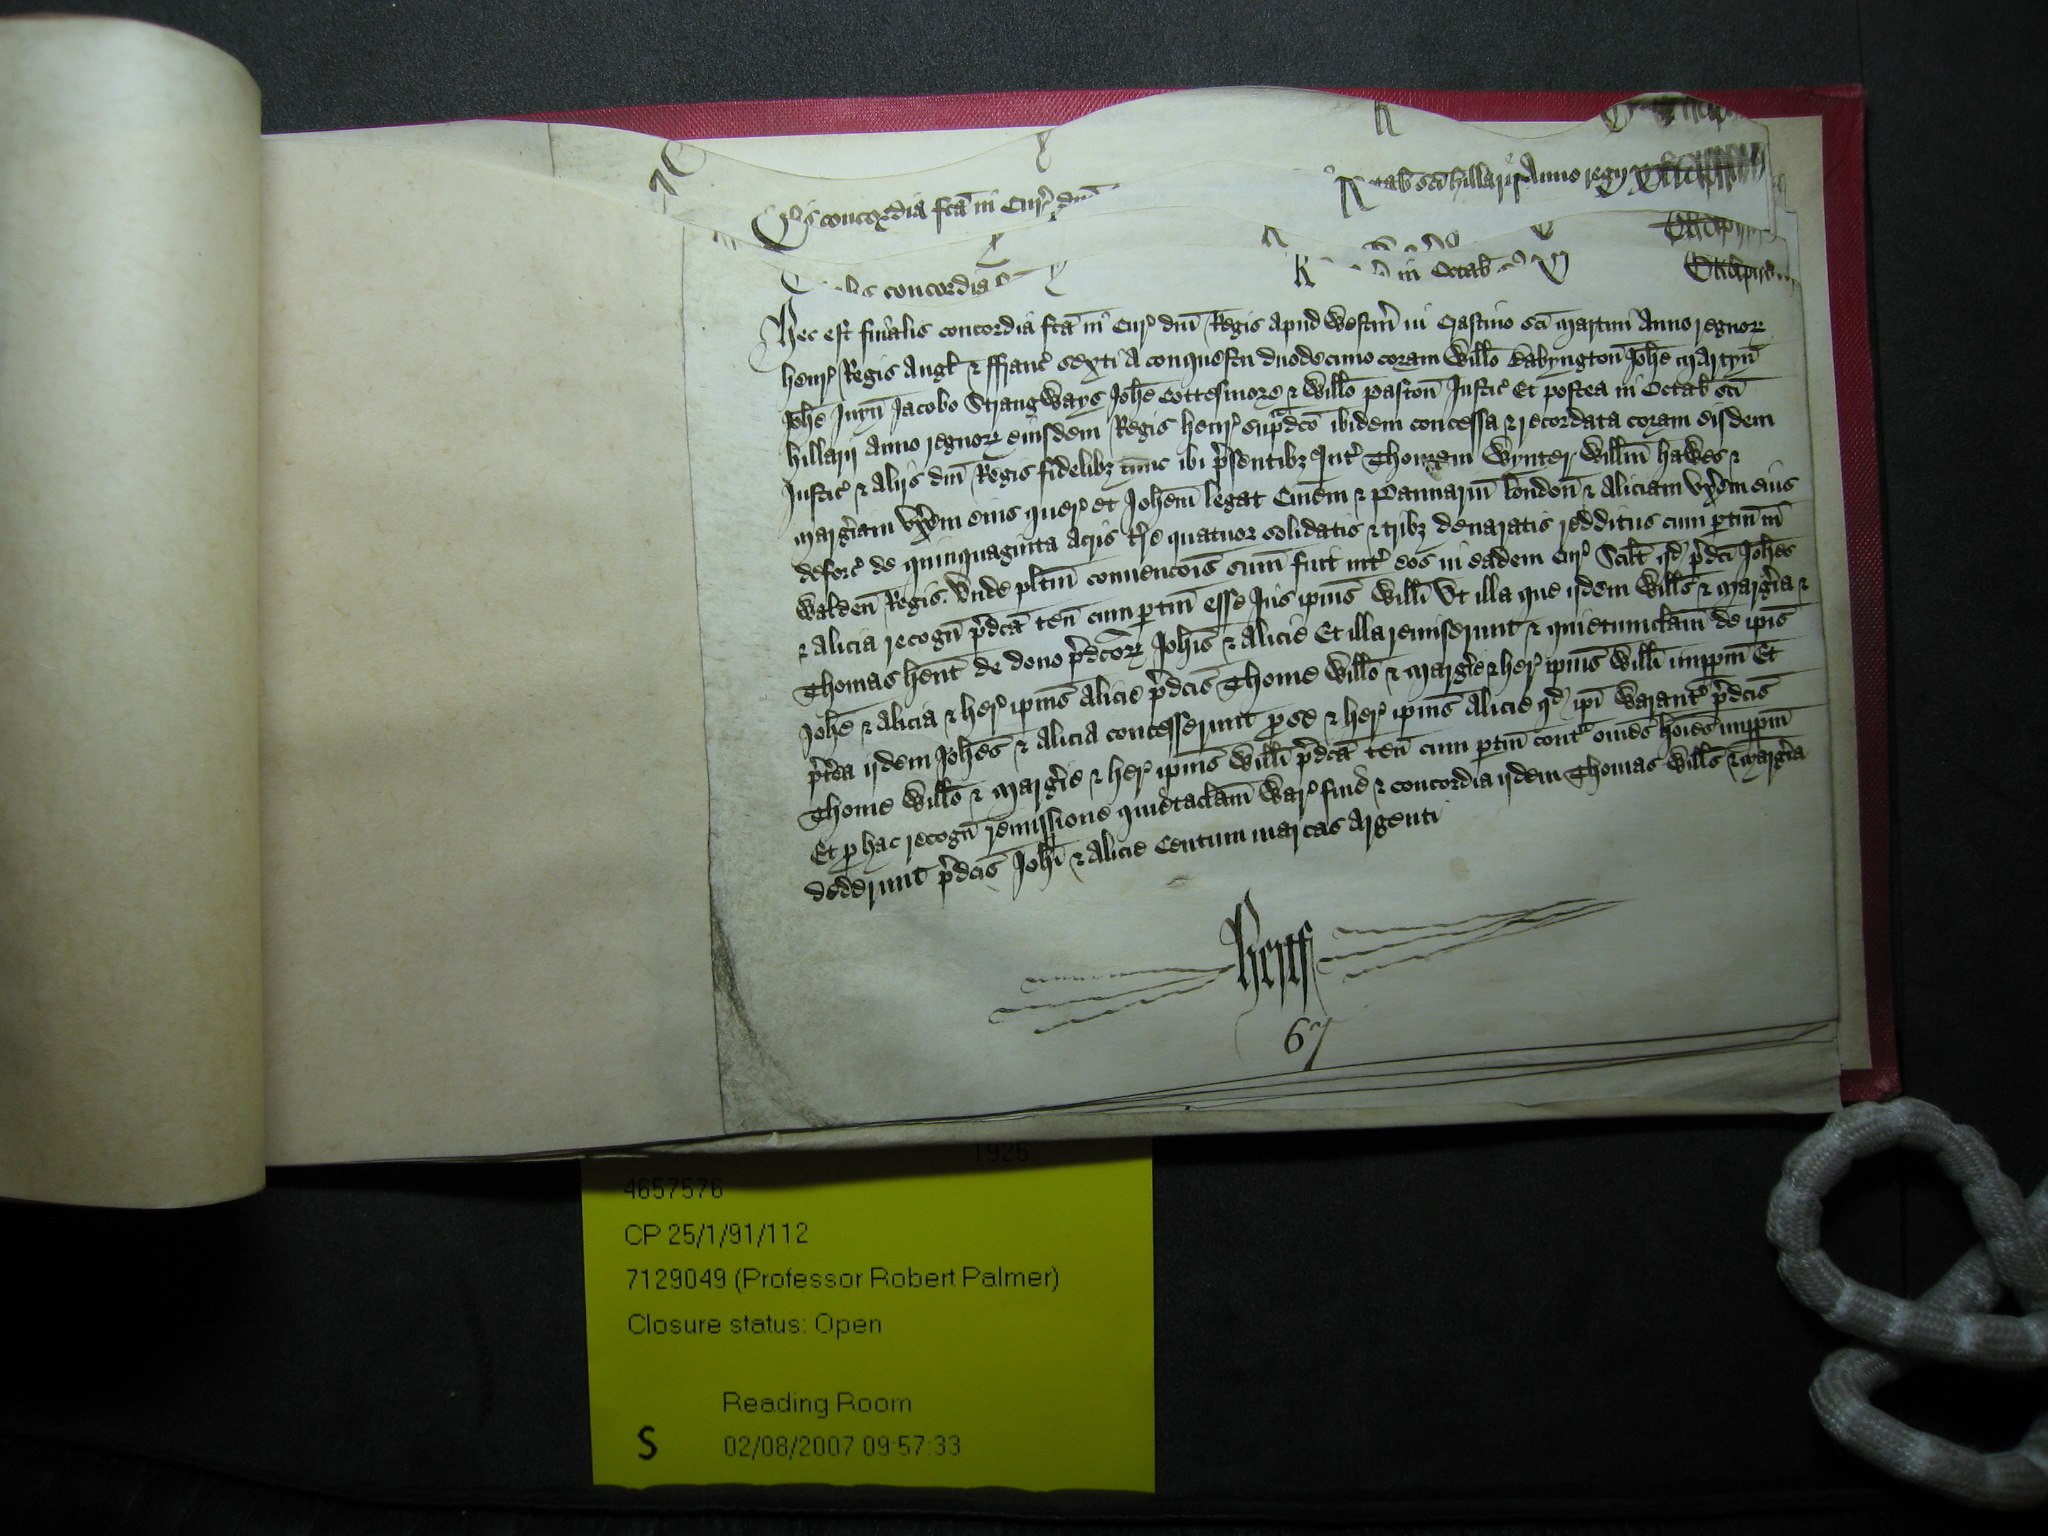 Qis concordia fca in Cur dni
Octab sci hillarij Anno regn
lis concordia
in Octab
Hec est finalis concordia fca in Cur dni Regis apud Westm in Crastino sci Martini Anno regnor
henr Regis Angl & ffranc sexti a conquestu duodecimo coram Willo Babyngton Johe Martyn
Johe Juyn Jacobo Strangways Johe Cottesmore & Willo Paston Justic Et postea in Octab sci
hillarij Anno regnor eiusdem Regis henr supradco ibidem concessa & recordata coram eisdem
Justic & alijs dni Regis fidelibz tunc ibi psentibz Int Thomam Wynter Willm hawes &
Margiam vxem eius quer et Johem legat Ciuem & Pannarium london & Aliciam vxem eius
deforc de quinquaginta acris tre quatuor solidatis & tribz denaratis redditus cum ptin in
Walden Regis. Vnde pltm conuencois sum fuit int eos in eadem Cur Scilt qd pdci Johes
& Alicia recogn pdca ten cum ptin esse Jus ipius Willi Vt illa que ijdem Wills & Margia &
Thomas hent de dono pdcor Johis & Alicie Et illa remiserunt & quietumclam de ipis
Johe & Alicia & her ipius Alicie pdcis Thome Willo & Margie & her ipius Willi imppm Et
ptea ijdem Johes & Alicia concesserunt p se & her ipius Alicie qd ipi Warant pdcis
Thome Willo & Margie & her ipius Willi pdca ten cum ptin contra omes hoies imppm
Et p hac recogn remissione quietaclam War fine & concordia ijdem Thomas Wills & Margia
dederunt pdcis Johi & Alicie Centum marcas argenti
Hertf
67
1925
4657576
CP 25/1/91/112
7129049 (Professor Robert Palmer)
Closure status: Open
Reading Room
S 02/08/2007 09:57:33